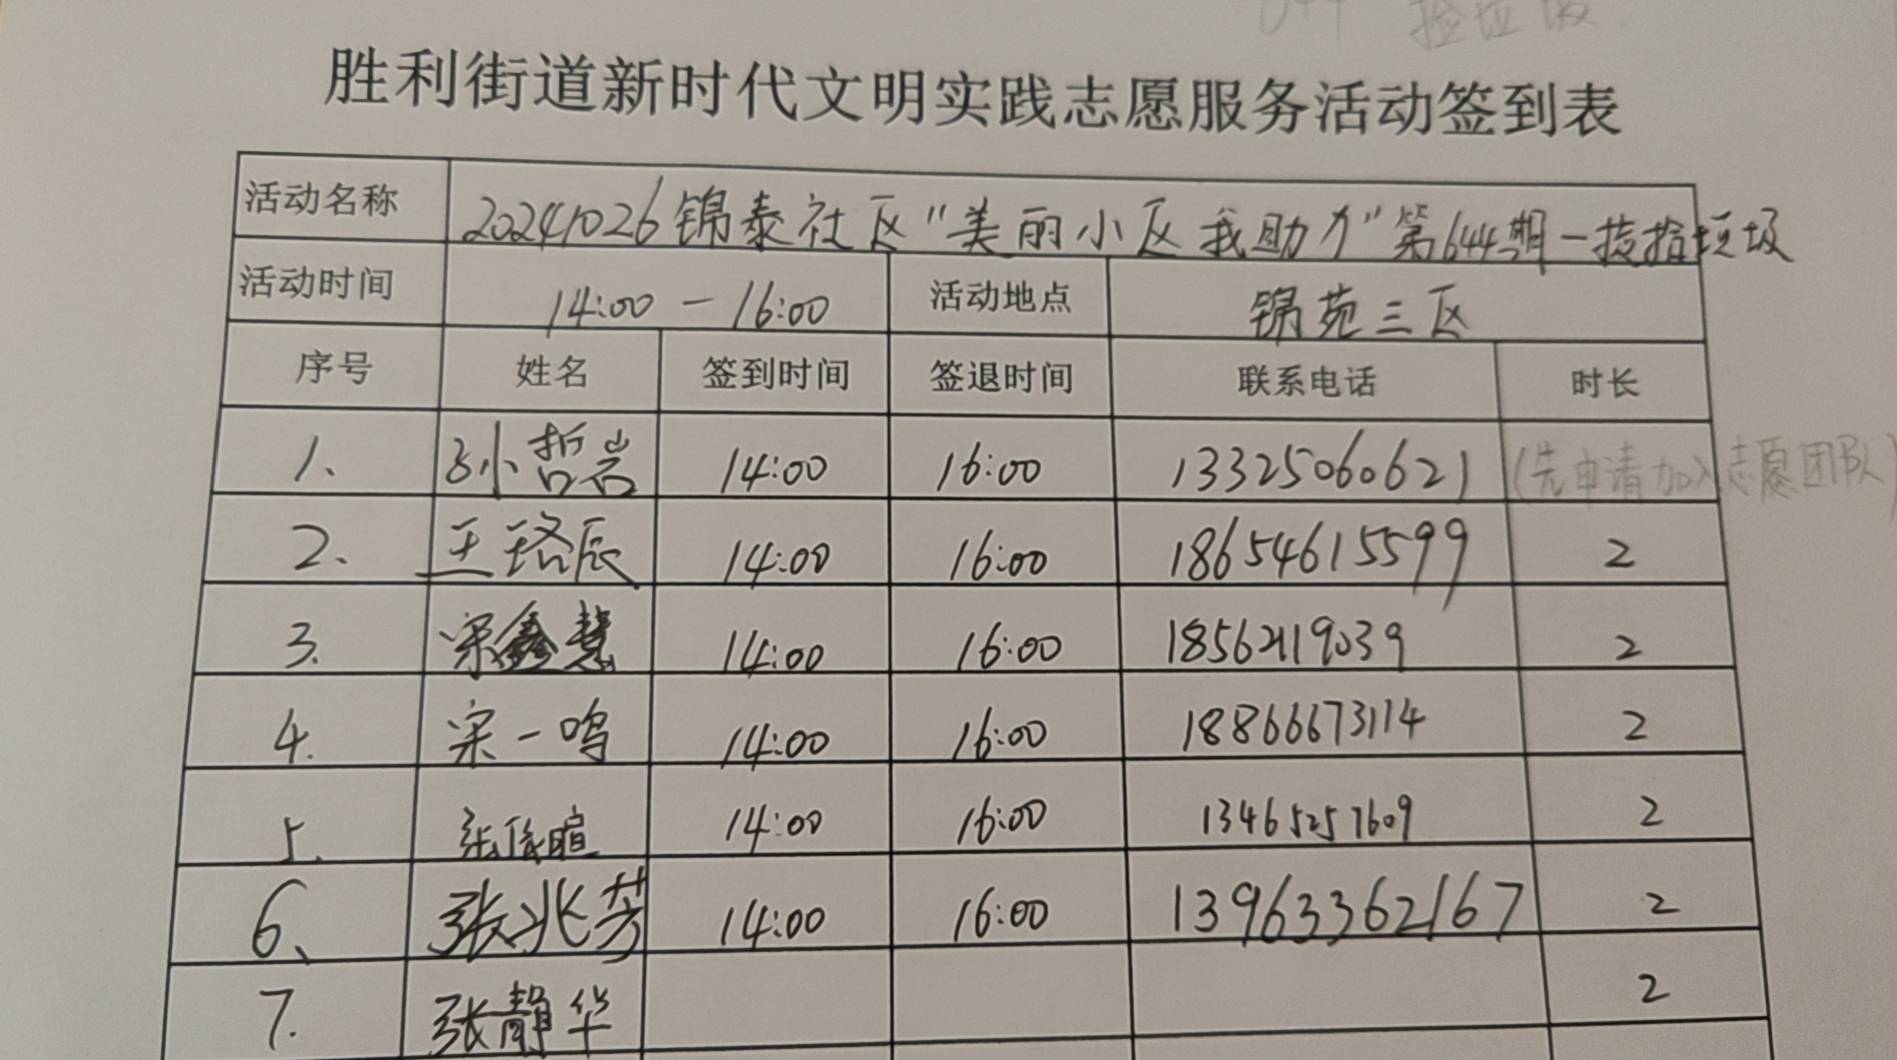 捡垃圾
胜利街道新时代文明实践志愿服务活动签到表
活动名称 20241026锦泰社区"美丽小区我助力"第644期一捡拾垃圾
活动时间 14:00-16:00 活动地点 锦苑三区
序号 姓名 签到时间 签退时间 联系电话 时长
1、 孙哲岩 14:00 16:00 13325060621 (先申请加入志愿团队)
2、 王珞辰 14:00 16:00 18654615599 2
3. 宋鑫慧 14:00 16:00 18562119039 2
4. 宋一鸣 14:00 16:00 18866673114 2
5、 张 14:00 16:00 13465257609 2
6、 张兆芳 14:00 16:00 13963362167 2
7. 张静华 2